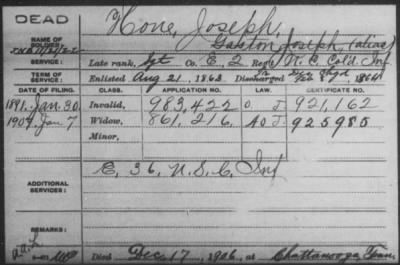 DEAD
Hone, Joseph,
NAME OF SOLDIER:
Gaston, Joseph, (alias)
SERVICE:
Late rank, Sgt Co. E, 2 Reg't N. C. Cold. Inf
TERM OF SERVICE:
Enlisted Aug 21, 1863. Discharged 1864
DATE OF FILING. CLASS. APPLICATION NO. LAW. CERTIFICATE NO.
1891. Jan. 30. Invalid, 983,422 O J. 921,162
1907 Jan 7 Widow, 861,216. A O J. 925985
Minor,
E, 36, U. S. C, Inf
ADDITIONAL SERVICES:
REMARKS:
Died Dec 17, 1906, at Chattanooga, Tenn,